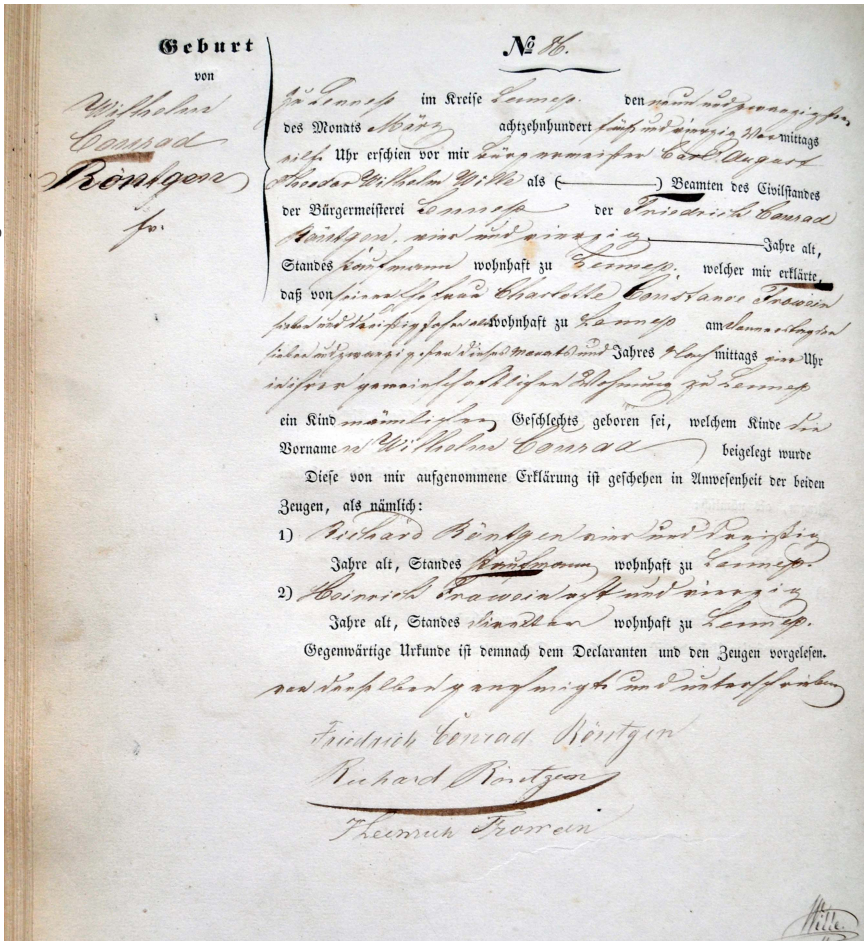 Geburt
von
Wilhelm
Conrad
Röntgen
fr.
№ 86.
Zu Lennep im Kreise Lennep. den neun und zwanzigsten
des Monats März achtzehnhundert fünf und vierzig Vormittags
eilf Uhr erschien vor mir Bürgermeister Carl August
Theodor Wilhelm Wille als ( ) Beamten des Civilstandes
der Bürgermeisterei Lennep der Friedrich Conrad
Röntgen, vier und vierzig Jahre alt,
Standes Kaufmann wohnhaft zu Lennep, welcher mir erklärte,
daß von seiner Ehefrau Charlotte Constance Frowein
sieben und dreißig Jahre alt wohnhaft zu Lennep am Donnerstag den
sieben und zwanzigsten dieses Monats und Jahres Nachmittags vier Uhr
in ihrer gemeinschaftlichen Wohnung zu Lennep
ein Kind männlichen Geschlechts geboren sei, welchem Kinde die
Vornamen Wilhelm Conrad beigelegt wurde
Diese von mir aufgenommene Erklärung ist geschehen in Anwesenheit der beiden
Zeugen, als nämlich:
1) Richard Röntgen vier und dreißig
Jahre alt, Standes Kaufmann wohnhaft zu Lennep.
2) Heinrich Frowein acht und vierzig
Jahre alt, Standes Director wohnhaft zu Lennep.
Gegenwärtige Urkunde ist demnach dem Declaranten und den Zeugen vorgelesen.
von denselben genehmigt und unterschrieben
Friedrich Conrad Röntgen
Richard Röntgen
Heinrich Frowein
Wille.